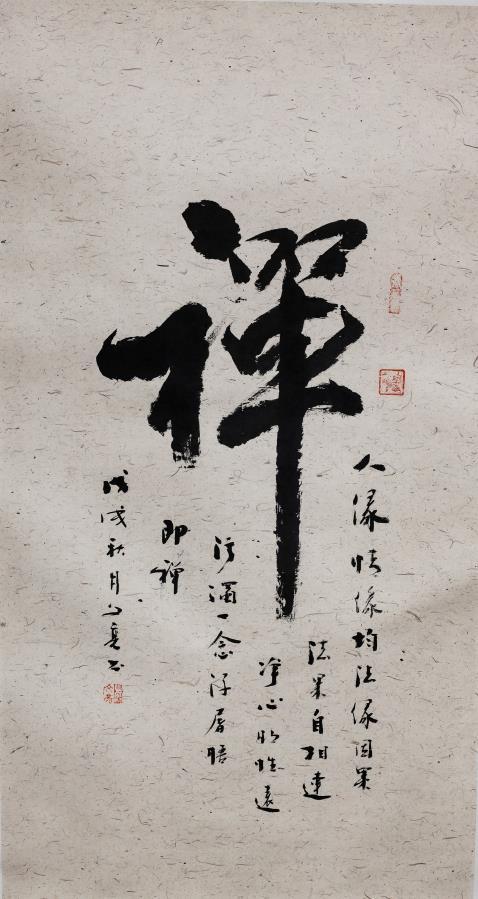 禅
人缘情缘均法缘因果
法果自相连
净心明性远
污浊一念浮屠悟
即禅
戊戌秋月